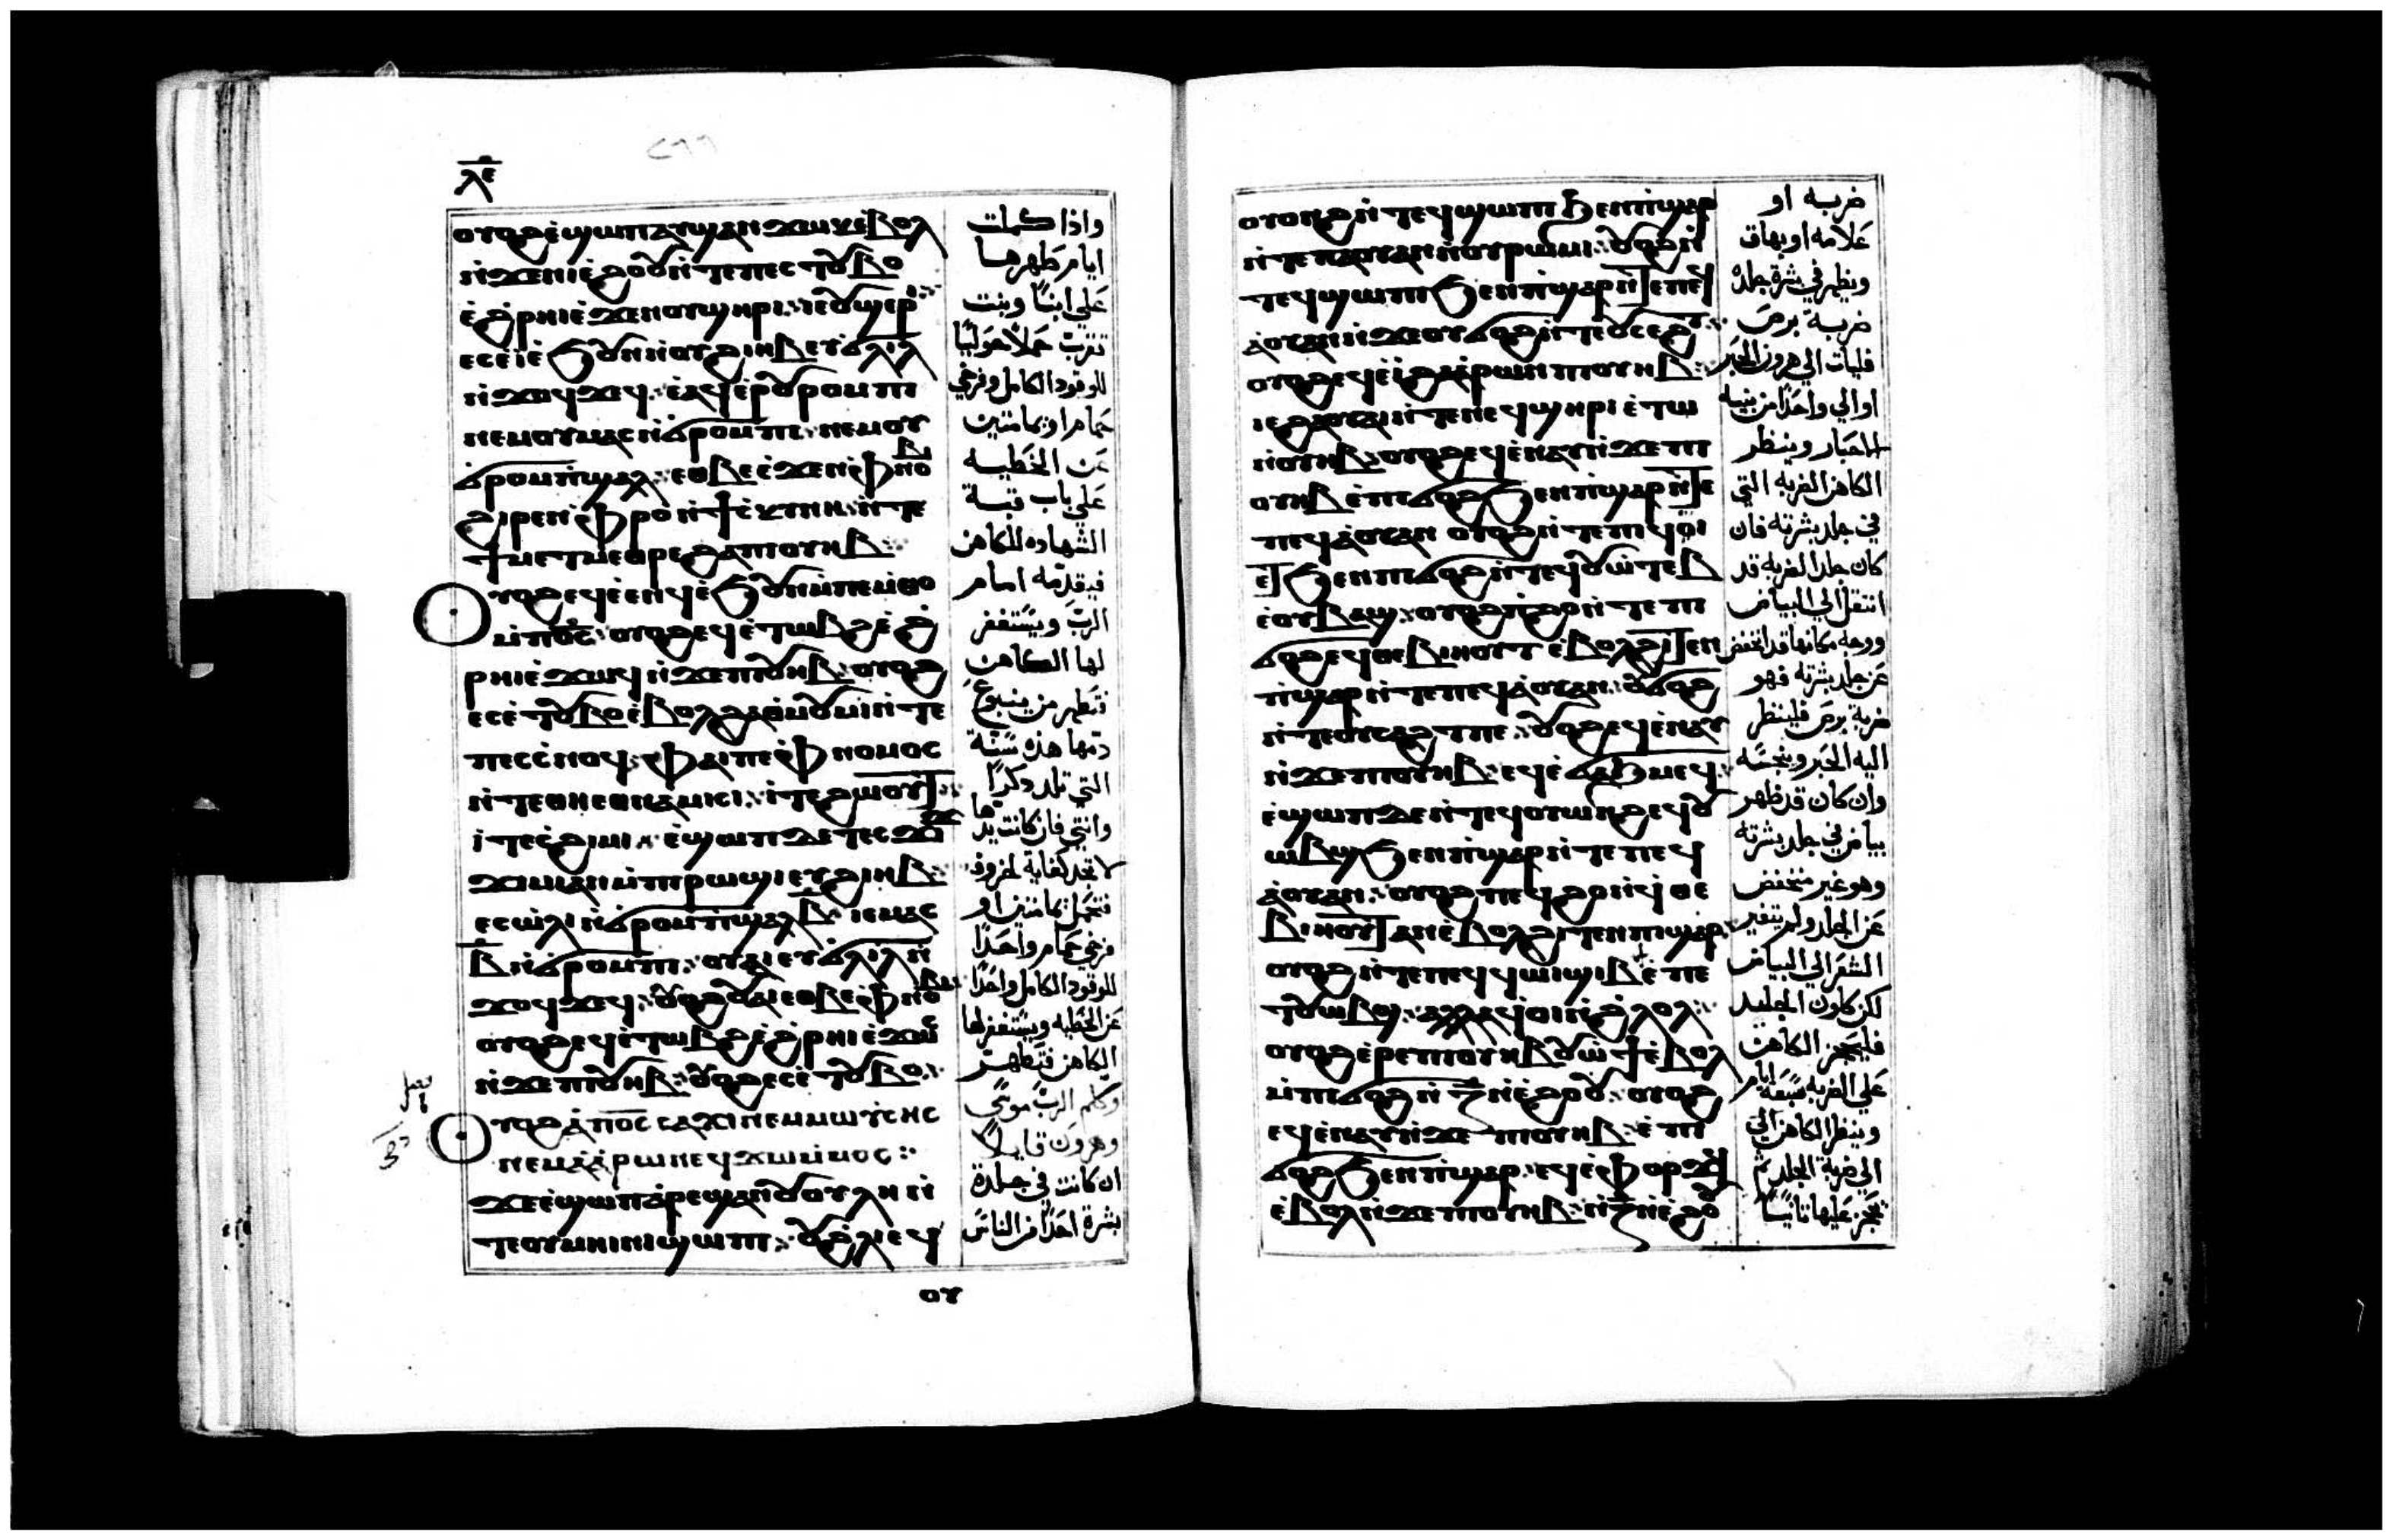 ⲗ︤ⲉ︥
ⲟⲩⲟϩ ⲉ̀ϣⲱⲡ ⲁⲩϣⲁⲛϫⲱⲕ ⲉ̀ⲃⲟⲗ
ⲛ̀ϫⲉ ⲛⲓⲉ̀ϩⲟⲟⲩ ⲛ̀ⲧⲉ ⲡⲉⲥⲧⲟⲩⲃⲟ
ⲉ̀ϩ̀ⲣⲏⲓ ⲉ̀ϫⲉⲛ ⲟⲩϣⲏⲣⲓ ⲓⲉ ⲟⲩϣⲉⲣⲓ
ⲉⲥⲉ̀ⲓ̀ⲛⲓ ⲉ̀ϧⲟⲩⲛ ⲛ̀ⲟⲩϩⲓⲏⲃ ⲉⲩϭⲗⲓⲗ
ⲛ̀ϫⲱϥϫⲉϥ ⲉ̀ⲁϥⲉⲣ ⲟⲩⲣⲟⲙⲡⲓ
ⲛⲉⲙ ⲟⲩⲙⲁⲥ ⲛ̀ϭⲣⲟⲙⲡⲓ ⲛⲉⲙ ⲟⲩ
ϭⲣⲟⲙⲡϣⲁⲗ ⲉⲑⲃⲉ ⲉ̀ϫⲉⲛ ⲫ̀ⲛⲟⲃⲓ
ϩⲓⲣⲉⲛ ⲫ̀ⲣⲟ ⲛ̀ϯⲥ̀ⲕⲩⲛⲏ ⲛ̀ⲧⲉ
ϯⲙⲉⲧⲙⲉⲑⲣⲉ ϩⲁ ⲡⲓⲟⲩⲏⲃ
ⲟⲩⲟϩ ⲉϥⲉ̀ⲉⲛϥ ⲉ̀ϧⲟⲩⲛ ⲙ̀ⲡⲉⲙ̀ⲑⲟ
ⲙ̀ⲡⲟ̅ⲥ̅ ⲟⲩⲟϩ ⲉϥⲉ̀ⲧⲱⲃϩ ⲉ̀ϩ̀
ⲣⲏⲓ ⲉ̀ϫⲱⲥ ⲛ̀ϫⲉ ⲡⲓⲟⲩⲏⲃ ⲟⲩⲟϩ
ⲉⲥⲉ̀ⲧⲟⲩⲃⲟ ⲉ̀ⲃⲟⲗ ϩⲁ ϯⲙⲟⲩⲙⲓ ⲛ̀ⲧⲉ
ⲡⲉⲥⲥ̀ⲛⲟϥ ⲫⲁⲓ ⲡⲉ ⲫ̀ⲛⲟⲙⲟⲥ
ⲛ̀ⲧⲉ ⲑⲏ ⲉⲑⲛⲁⲙⲓⲥⲓ ⲓ̀ⲧⲉ ϩⲱⲟⲩⲧ
ⲓ̀ⲧⲉ ⲥ̀ϩⲓⲙⲓ ⲉ̀ϣⲱⲡ ⲇⲉ ⲧⲉⲥϫⲓϫ
ϫⲓⲙⲓ ⲁⲛ ⲙ̀ⲡ̀ⲣⲱϣⲓ ⲉⲩϩⲓⲏⲃ
ⲉⲥⲱ̀ⲗⲓ ⲛ̀ϭⲣⲟⲙⲡϣⲁⲗ ⲃ̅ ⲓⲉ ⲙⲁⲥ
ⲃ̅ ⲛ̀ϭⲣⲟⲙⲡⲓ ⲟⲩⲁⲓ ⲉⲩϭⲗⲓⲗ ⲛ̀
ϫⲟϥϫⲉϥ ⲟⲩⲟϩ ⲟⲩⲁⲓ ⲉⲑⲃⲉ ⲫ̀ⲛⲟⲃⲓ
ⲟⲩⲟϩ ⲉϥⲉ̀ⲧⲱⲃϩ ⲉ̀ϩ̀ⲣⲏⲓ ⲉ̀ϫⲱⲥ
ⲛ̀ϫⲉ ⲡⲓⲟⲩⲏⲃ ⲟⲩⲟϩ ⲉⲥⲉ̀ⲧⲟⲩⲃⲟ
ⲟⲩⲟϩ ⲁ̀ⲡⲟ̅ⲥ̅ ⲥⲁϫⲓ ⲛⲉⲙ ⲙⲱⲩ̀ⲥⲏⲥ
ⲛⲉⲙ ⲁ̀ⲁ̀ⲣⲱⲛ ⲉϥϫⲱⲙ̀ⲙⲟⲥ
ϫⲉ ⲉ̀ϣⲱⲡ ⲁ̀ⲣⲉϣⲁⲛ ⲟⲩⲟⲩⲗⲏ ⲛ̀
ⲧⲉ ⲟⲩⲙⲏⲓⲛⲓ ϣⲱⲡⲓ
ⲟⲩ
واذا كملت
ايام طهرها
على ابنًا وبنت
تقرب حملاً حوليًا
للوقود الكامل وفرخي
حمام او يمامتين
عن الخطيه
على باب قبة
الشهاده للكاهن
فيقدمه امام
الرب ويستغفر
لها الكاهن
فتطهر من ينبوع
دمها هذه سنة
التي تلد ذكرًا
وانثي فان كانت يدها
لا تجد كفاية لخروف
فتحمل يمامتين او
فرخي حمام واحدًا
للوقود الكامل واحدًا
عن الخطيه ويستغفر لها
الكاهن فتطهر
وكلم الرب موسى
وهرون قايلاً
ان كانت في جلدة
بشرة احدًا من الناس
ⲟⲩⲟϩ ⲛ̀ⲧⲉϥϣⲱⲡⲓ ϧⲉⲛ ⲡ̀ϣⲁⲣ
ⲛ̀ⲧⲉ ⲡⲁⲟⲩⲁⲛ ⲛ̀ⲟⲩⲣⲱⲙⲓ ⲟⲩⲟϩ ⲛ̀
ⲧⲉϥϣⲱⲡⲓ ϧⲉⲛ ⲡ̀ϣⲁⲣ ⲛ̀ⲧⲉ ⲡⲉϥ
ⲁ̀ⲟⲩⲁⲛ ⲛ̀ϫⲉ ⲟⲩϭⲟϩ ⲛ̀ⲧⲉ ⲟⲩⲥⲉϩⲧ
ⲟⲩⲟϩ ⲉϥⲉ̀ⲓ̀ ϩⲁ ⲁ̀ⲁ̀ⲣⲱⲛ ⲡⲓⲟⲩⲏⲃ
ⲓⲉ ϩⲁ ⲟⲩⲁⲓ ⲛ̀ⲧⲉ ⲛⲉϥϣⲏⲣⲓ ⲉ̀ⲧⲱ
ⲛ̀ⲟⲩⲏⲃ ⲟⲩⲟϩ ⲉϥⲉ̀ⲛⲁⲩ ⲛ̀ϫⲉ ⲡⲓ
ⲟⲩⲏⲃ ⲉ̀ⲡⲓϭⲟϩ ϧⲉⲛ ⲡ̀ϣⲁⲣ ⲛ̀ⲧⲉ
ⲡⲉϥⲁ̀ⲟⲩⲁⲛ ⲟⲩⲟϩ ⲛ̀ⲧⲉ ⲡⲓϥⲱⲓ
ⲉⲧϧⲉⲛ ⲡⲓϭⲟϩ ⲛ̀ⲧⲉϥⲟⲩⲱ̀ⲧⲉⲃ
ⲉ̀ⲟⲩⲃⲁϣ ⲟⲩⲟϩ ⲡ̀ϩⲟ ⲛ̀ⲧⲉ ⲡⲓ
ϭⲟϩ ⲉϥⲑⲉⲃⲓⲏⲟⲩⲧ ⲉ̀ⲃⲟⲗ ϩⲓⲧⲉⲛ
ⲡ̀ϣⲁⲣ ⲛ̀ⲧⲉ ⲡⲉϥⲁ̀ⲟⲩⲁⲛ ⲟⲩϭⲟϩ
ⲛ̀ⲧⲉ ⲟⲩⲥⲉϩⲧ ⲡⲉ ⲟⲩⲟϩ ⲉϥⲉ̀ⲛⲁⲩ
ⲛ̀ϫⲉ ⲡⲓⲟⲩⲏⲃ ⲉϥⲉ̀ϭⲁϧⲙⲉϥ
ⲉ̀ϣⲱⲡ ⲇⲉ ⲛ̀ⲧⲉϥⲟⲩⲱⲛϩ ⲉϥⲟⲩ
ⲱⲃϣ ϧⲉⲛ ⲡ̀ϣⲁⲣ ⲛ̀ⲧⲉ ⲡⲉϥ
ⲁ̀ⲟⲩⲁⲛ ⲟⲩⲟϩ ⲡⲉϥϩⲟ ⲛ̀ϥ̀ⲑⲉ
ⲃⲓⲏⲟⲩⲧ ⲁⲛ ⲉ̀ⲃⲟⲗ ϩⲓⲧⲉⲛ ⲡⲓϣⲁⲣ
ⲟⲩⲟϩ ⲛ̀ⲧⲉ ⲡⲉϥϥⲱⲓ ϣⲓⲃϯ ⲉ̀ⲡⲉ
ⲧⲟⲩⲱⲃϣ ⲁⲗⲗⲁ ϥⲟⲓ ⲛ̀ϩ̀ⲗⲟⲗ
ⲟⲩⲟϩ ⲉ̀ⲣⲉ ⲡⲓⲟⲩⲏⲃ ⲟⲩⲱ̀ϯ ⲉ̀ⲃⲟⲗ
ⲙ̀ⲡⲓϭⲟϩ ⲛ̀ⲍ̅ ⲛ̀ⲉ̀ϩⲟⲟⲩ ⲟⲩⲟϩ
ⲉϥⲉ̀ⲛⲁⲩ ⲛ̀ϫⲉ ⲡⲓⲟⲩⲏⲃ ⲉ̀ⲡⲓ
ϭⲟϩ ϧⲉⲛ ⲡ̀ϣⲁⲣ ⲉϥⲉ̀ⲫⲟⲣϫϥ
ⲉ̀ⲃⲟⲗ ⲛ̀ϫⲉ ⲡⲓⲟⲩⲏⲃ ⲛ̀ⲍ̅ ⲛ̀ⲉ̀ϩⲟ
ضربه او
علامه او بهاق
ويظهر في بشرة جلده
ضربة برص
فليات الى هرون الحبر
او الي واحدًا من بنيه
الاحبار وينظر
الكاهن الضربه التي
في جلد بشرته فان
كان جلد الضربه قد
انتقل الي البياض
ووجه مكانها قد انخفض
عن جلد بشرته فهو
ضربة برص فلينظر
اليه الحبر وينجسه
وان كان قد ظهر
بياض في جلد بشرته
وهو غير منخفض
عن الجلد ولم يتغير
الشعر الى البياض
لكن كلون الجليد
فليحجز الكاهن
على الضربه سبعة ايام
وينظر الكاهن الي
الى ضربة الجلد ثم
يحجز عليها ثانيًا